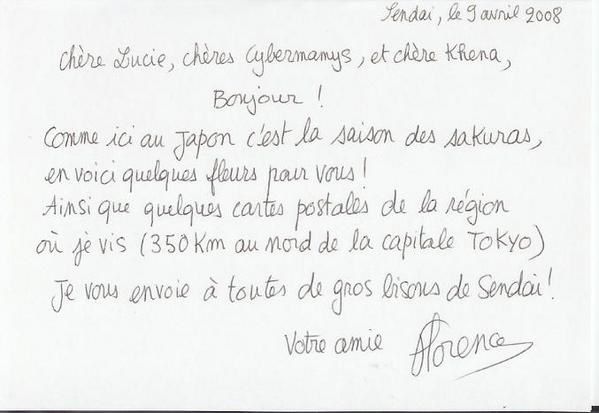 Sendai, le 9 avril 2008
Chère Lucie, chères Cybermamys, et chère Khena,
Bonjour !
Comme ici au Japon c'est la saison des sakuras,
en voici quelques fleurs pour vous !
Ainsi que quelques cartes postales de la région
où je vis (350 Km au nord de la capitale TOKYO)
Je vous envoie à toutes de gros bisous de Sendai !
Votre amie Florence